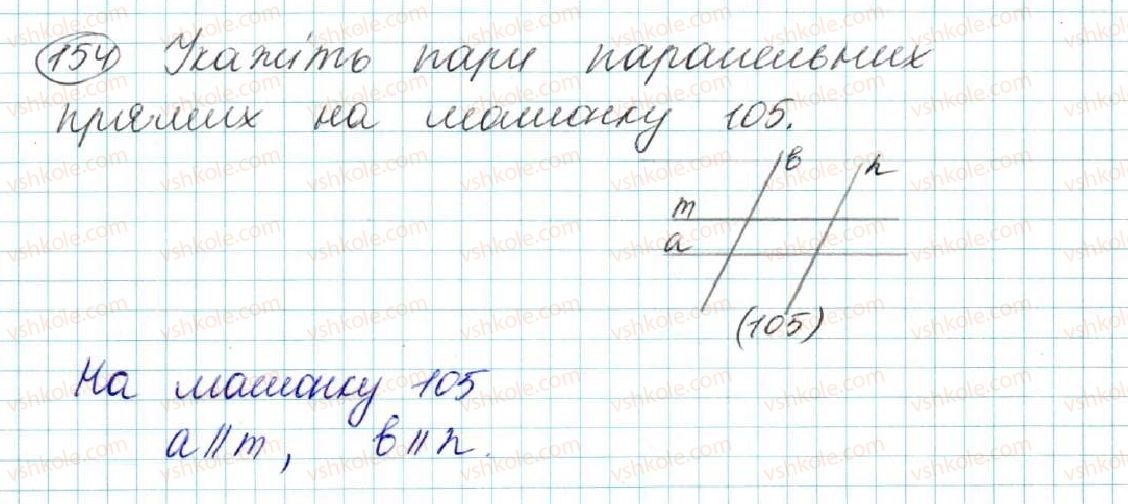 154 Укажіть пари паралельних
прямих на малюнку 105.
в n
m
a
(105)
На малюнку 105
a || m, в || n.
vshkole.com